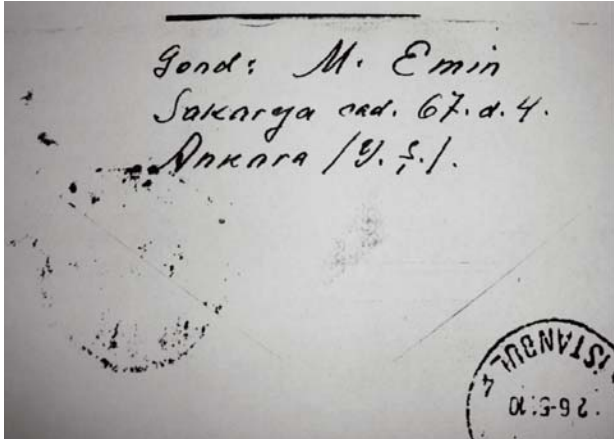 Gönd: M. Emin
Sakarya cad. 67. d. 4.
Ankara /Y. Ş./.
İSTANBUL 4